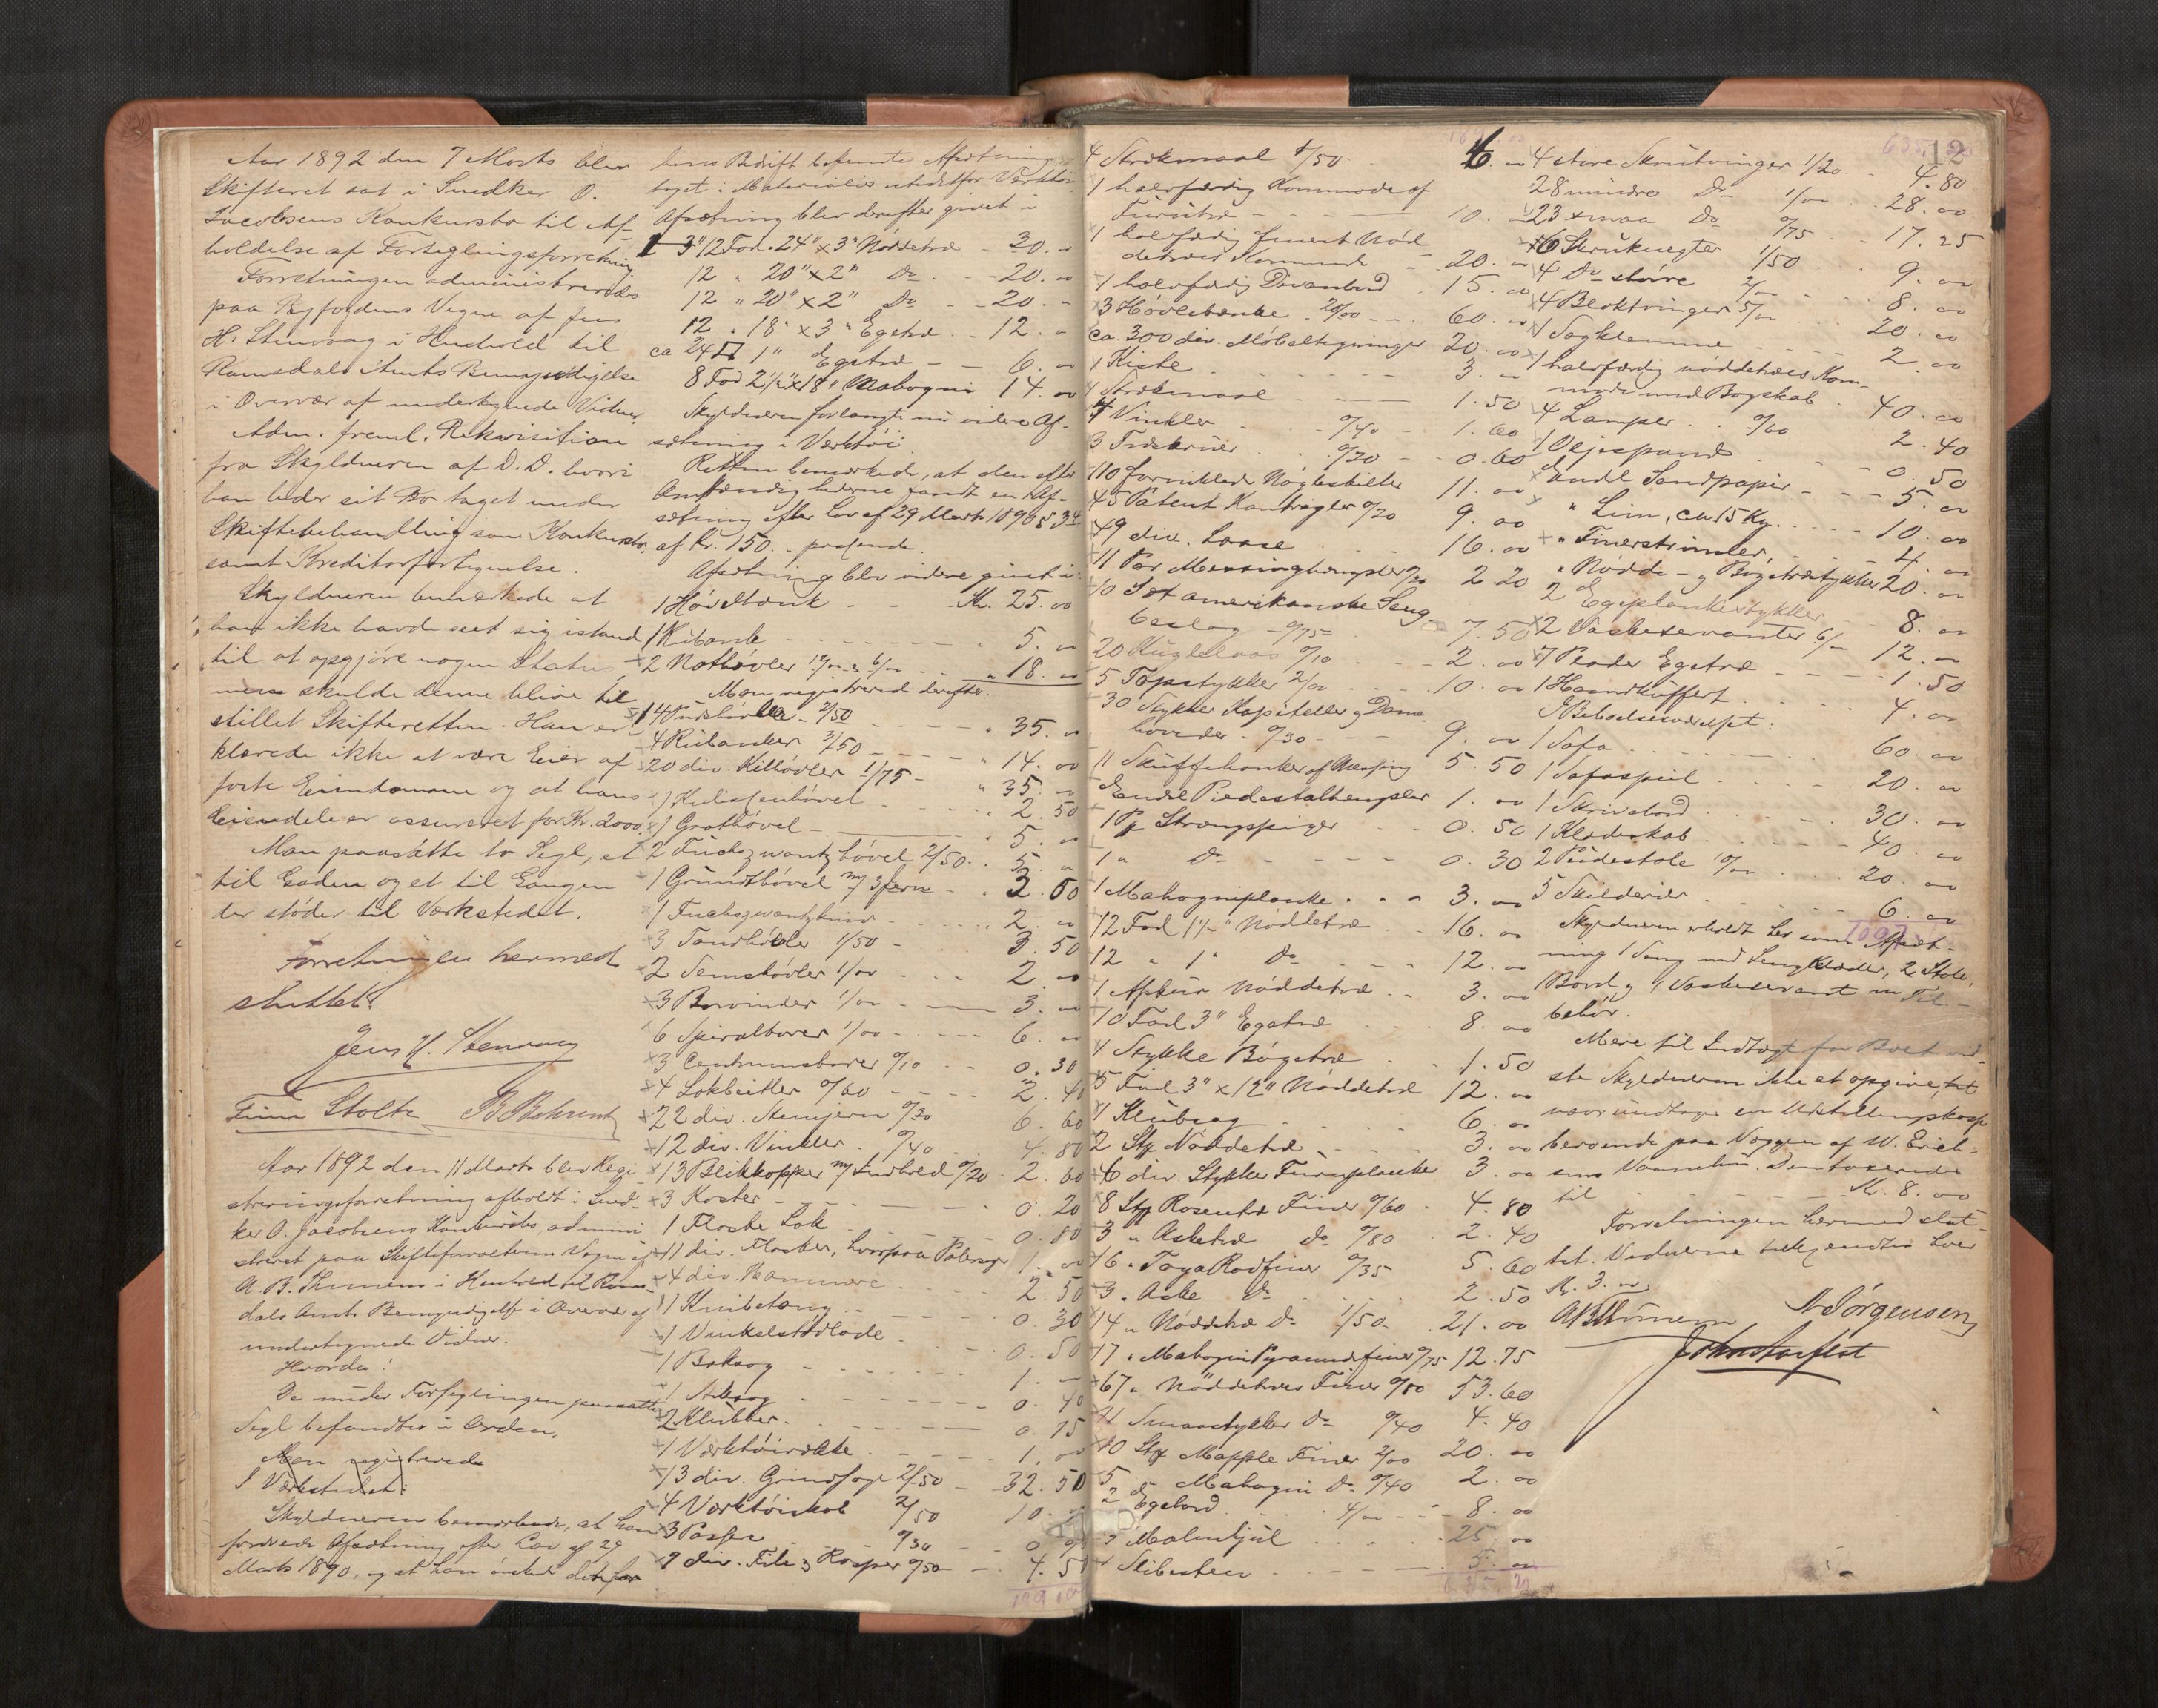 Aar 1892 den 7 Marts blev
Skifteret sat i Snedker O.
Jacobsens Konkursbo til Af-
holdelse af Forseglingsforretning.
Forretningen administreredes
paa Byfogdens Vegne af Jens
H. Stenvaag i Henhold til
Romsdals Amts Bemyndigelse
i Overvær af undertegnede Vidner.
Adm. freml. Rekvisition
fra Skyldneren af D.D. hvori
han beder sit Bo taget under
Skiftebehandling som Konkursbo
samt Kreditorfortegnelse.
Skyldneren bemærkede at
han ikke havde seet sig istand
til at opgjøre nogen Status,
men skulde denne blive til-
stillet Skifteretten. Han er-
klærede ikke at være Eier af
faste Eiendomme og at hans
Eiendele er assureret for Kr. 2000.
Man paasatte to Segl, et
til Gaden og et til Gangen
der støder til Værkstedet.
Forretningen hermed
sluttet.
Jens H. Stenvaag
Finn Stoltz B Behrentz
Aar 1892 den 11 Marts blev Regi-
streringsforretning afholdt i Sned-
ker O. Jacobsens Konkursbo, admini-
streret paa Skifteforvalterens Vegne af
A. B. Thinnem i Henhold til Roms-
dals Amts Bemyndigelse i Overvær af
undertegnede Vidner.
Hvorda:
De under Forseglingen paasatte
Segl befandtes i Orden.
Man registrerede
I Værkstedet:
Skyldneren bemærkede, at han
fordrede Afsætning efter Lov af 29
Marts 1890, og at han ønskede den for
hans Bedrift bestemte Afsætning
taget i Materialier istedetfor Værktøi
Afsætning blev derefter givet i
3" 12 Fod. 24" x 3" Nøddetræ - 30.00
12 " 20" x 2" Do - 20.00
12 " 20" x 2" Do - 20.
12 " 18" x 3" Egetræ - 12.
ca 24 1" Egetræ - 6.
8 Fod 2½" x 18" Mahogni 14.00
Skyldneren forlangte nu videre Af-
sætning i Værktøi
Retten bemærkede, at den efter
Omstændighederne fandt en Af-
sætning efter Lov af 29 Marts 1890 § 34
af Kr. 150. passende.
Afsætning blev videre givet i:
1 Høvelbænk - - Kr. 25.00
1 Rubank - - 5.00
2 Nothøvler 12/00 & 6/00 - 18.00
Man registrerede derefter:
14 Pudshøvle 2/50 - 35.00
4 Rubanker 3/50 - 14.00
20 div. Kilhøvler 1/75 - 35.
1 Kulissenhøvel - 2.50
1 Grathøvel - 5.00
2 Fuchszwantzhøvel 2/50 - 5.00
1 Grundthøvel m/ 3 Jern - 2.50
1 Fuchszwantz - 2.00
3 Tandhøvler 1/50 - 3.50
2 Semshøvler 1/00 - 2.00
3 Borvinder 1/00 - 3.00
6 Spiralborer 1/00 - 6.00
3 Centrumsborer 0/10 - 0.30
4 Lokbeitler 0/60 - 2.40
22 div. Stemjern 0/30 6.60
12 div. Vinkler 0/40 - 4.80
13 Blikkopper m/ Indhold 0/20 - 2.60
3 Koster - 0.20
1 Flaske Lak 0.80
11 div. Flasker, hvorpaa 1.00
4 div. Hammere 2.50
1 Knibetang - 0.30
1 Vinkelstødlade - 0.50
1 Baksag - 1.
1 Stiksag - 0.40
2 Klubber - 0.15
1 Værktøirække - 1.00
13 div. Grindsage 2/50 - 32.50
4 Værktøiskab 2/50 10.
3 Passere 0/30 - 0.9
9 div. File & Rasper 0/50 - 4.5
4 Strekmaal 1/50 6.00
1 halvfærdig Kommode af
Furutræ - - 10.
1 halvfærdig finert Nød-
detræes Kommode - 20.
1 halvfærdig Divanbord 15.00
3 Høvlebænke 20/00 - 60.
ca. 300 div. Møbeltegninger 20.00
1 Kiste - 3.
Strekmaal - 1.50
4 Vinkler 0/40 - 1.60
3 Træskruer 0/20 - 0.60
110 fornikled Nøgleskilter 11.00
45 Patent Kantregler 0/20 9.00
49 div. Laase 16.00
11 Par Messinghængsler 0/20 2.20
10 Sæt amerikanske Seng-
beslag 0/75 7.50
20 Kuglelaas 0/10 - 2.00
5 Topstykker 2/00 10.00
30 Stykker Kapiteller & Dame-
hoveder 0/30 - 9.00
11 Skuffehanker af Messing 5.50
Endel Piedestalhængsler 1.00
1 Pk Strængspiger - 0.50
1 " Do - 0.30
1 Mahogniplanke 3.00
12 Fod 1½" Nøddetræ 16.00
12 " 1" Do - 12.00
1 Nøddetræ 3.00
10 Fod 3" Egetræ 8.00
4 Stykke Bøgetræ - 1.50
5 Fod 3" x 12" Nøddetræ 12.00
1 Klubsag 6.00
2 Stk Nøddetræ 3.00
6 div. Stykker Furuplanker 3.00
8 Stk Rosentræ Finer 0/60 4.80
3 " Asketræ do 0/80 2.40
16 " Toya Rodfiner 0/35 5.60
3 " Aske do 2.50
14 " Nøddetræ do 1/50 21.00
17 " Mahogni Pyramidefiner 0/75 12.75
67 " Nøddetræes Finer 0/80 53.60
11 Smaastykker do 0/40 4.40
10 Stk Mapple Finer 2/00 20.00
5 " Mahogni do 0/40 2.00
2 Egebord 4/00 - 8.00
1 Malmhjul 25.00
1 Slibesten 5.00
12
4 store Skrutvinger 1/20 4.80
28 mindre Do 1/00 28.00
23 smaa Do 0/75 17.25
6 Skruknegter 1/50 9.00
4 Do større 2/ 8.00
4 Bloktvinger 5/00 20.00
1 Sagklemme 2.00
1 halvfærdig nøddetræes Kom-
mode med Bogskab 40.00
4 Lamper 0/60 2.40
1 Oljespand 0.50
Endel Sandpapir - 5.
" Lim, ca 15 Kg. 10.00
" Finerstrimler 4.
" Nødde- og Bøgetræstykker 20.
2 Egeplankestykker 8.
2 Vaskeservanter 6/00 12.
7 Egetræ 1.50
1 Haandkuffert 4.00
I Beboelsesværelset:
1 Sofa 60.00
1 Sofaspeil 20.
1 Skrivebord 30.00
1 Klædeskab 40.
2 Piedestale 10/00 20.00
5 Skilderier 6.00
Skyldneren erholdt her som Afsæt-
ning 1 Seng med Sengklæder, 2 Stole,
1 Bord og 1 Vaskeservant m Til-
behør.
Mere til Indtægt for Boet vid-
ste Skyldneren ikke at opgive,
undtagen en Udstillingskasse
beroende paa Væggen af W. Erich-
sens Vaanehus. Den taxeredes
til Kr. 8.00
Forretningen hermed slut-
tet. Vidnerne tilkjendtes hver
Kr. 3.00
ABThinnem N Jørgensen